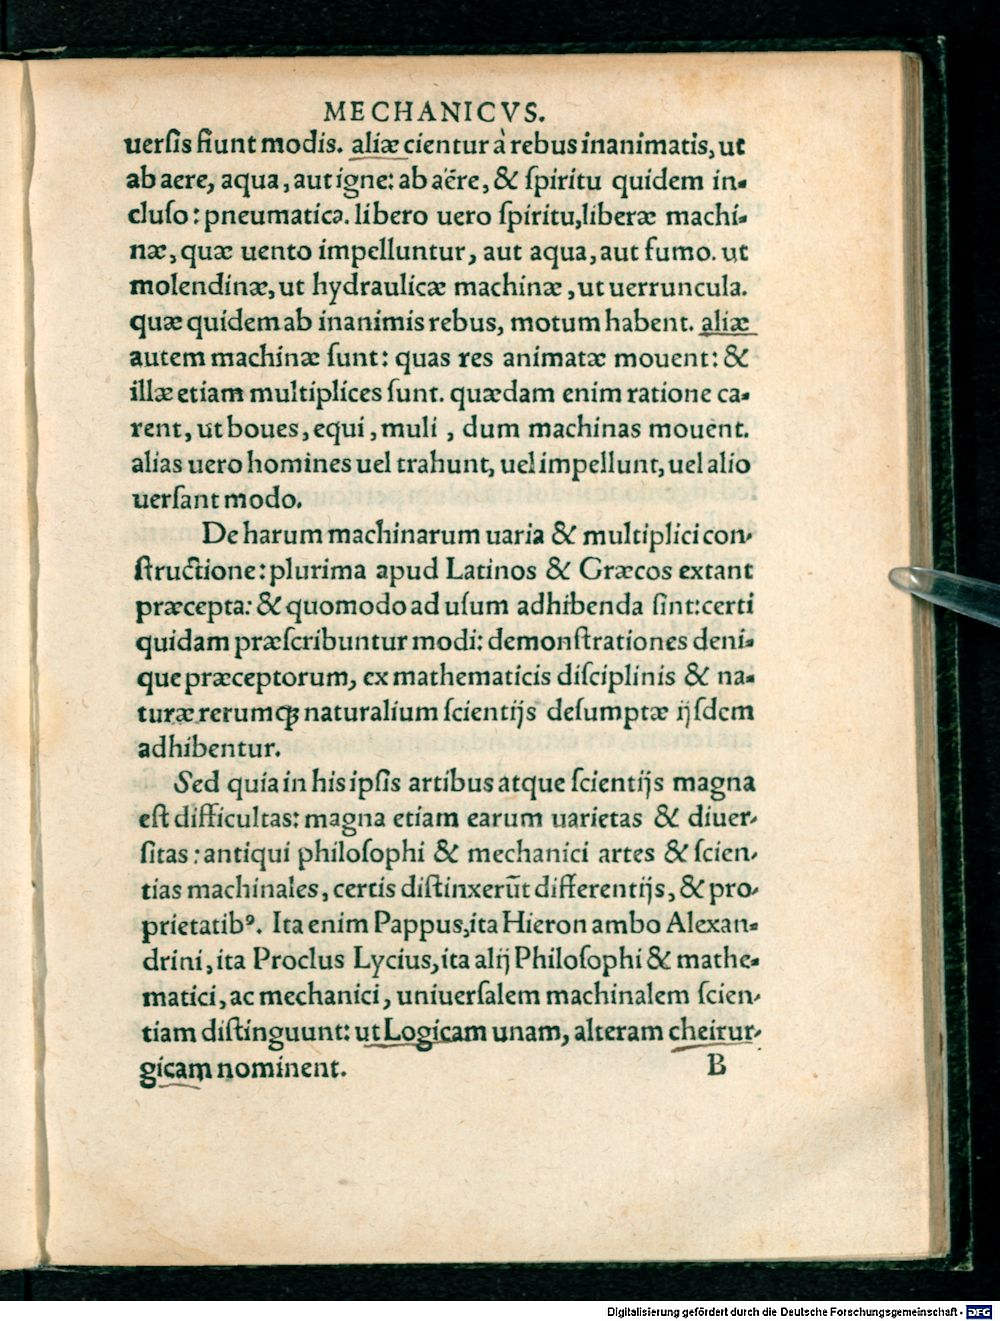 MECHANICVS.
uerſis fiunt modis. aliæ cientur à rebus inanimatis, ut
ab aere, aqua, aut igne: ab aëre, & ſpiritu quidem in-
cluſo: pneumatica. libero uero ſpiritu, liberæ machi-
næ, quæ uento impelluntur, aut aqua, aut fumo. ut
molendinæ, ut hydraulicæ machinæ, ut uerruncula.
quæ quidem ab inanimis rebus, motum habent. aliæ
autem machinæ ſunt: quas res animatæ mouent: &
illæ etiam multiplices ſunt. quædam enim ratione ca-
rent, ut boues, equi, muli, dum machinas mouent.
alias uero homines uel trahunt, uel impellunt, uel alio
uerſant modo.
De harum machinarum uaria & multiplici con-
ſtructione: plurima apud Latinos & Græcos extant
præcepta: & quomodo ad uſum adhibenda ſint: certi
quidam præſcribuntur modi: demonſtrationes deni-
que præceptorum, ex mathematicis diſciplinis & na-
turæ rerumꝙ naturalium ſcientijs deſumptæ ijſdem
adhibentur.
Sed quia in his ipſis artibus atque ſcientijs magna
eſt difficultas: magna etiam earum uarietas & diuer-
ſitas: antiqui philoſophi & mechanici artes & ſcien-
tias machinales, certis diſtinxerūt differentijs, & pro-
prietatibꝰ. Ita enim Pappus, ita Hieron ambo Alexan-
drini, ita Proclus Lycius, ita alij Philoſophi & mathe-
matici, ac mechanici, uniuerſalem machinalem ſcien-
tiam diſtinguunt: ut Logicam unam, alteram cheirur-
gicam nominent.
B
Digitalisierung gefördert durch die Deutsche Forschungsgemeinschaft - DFG